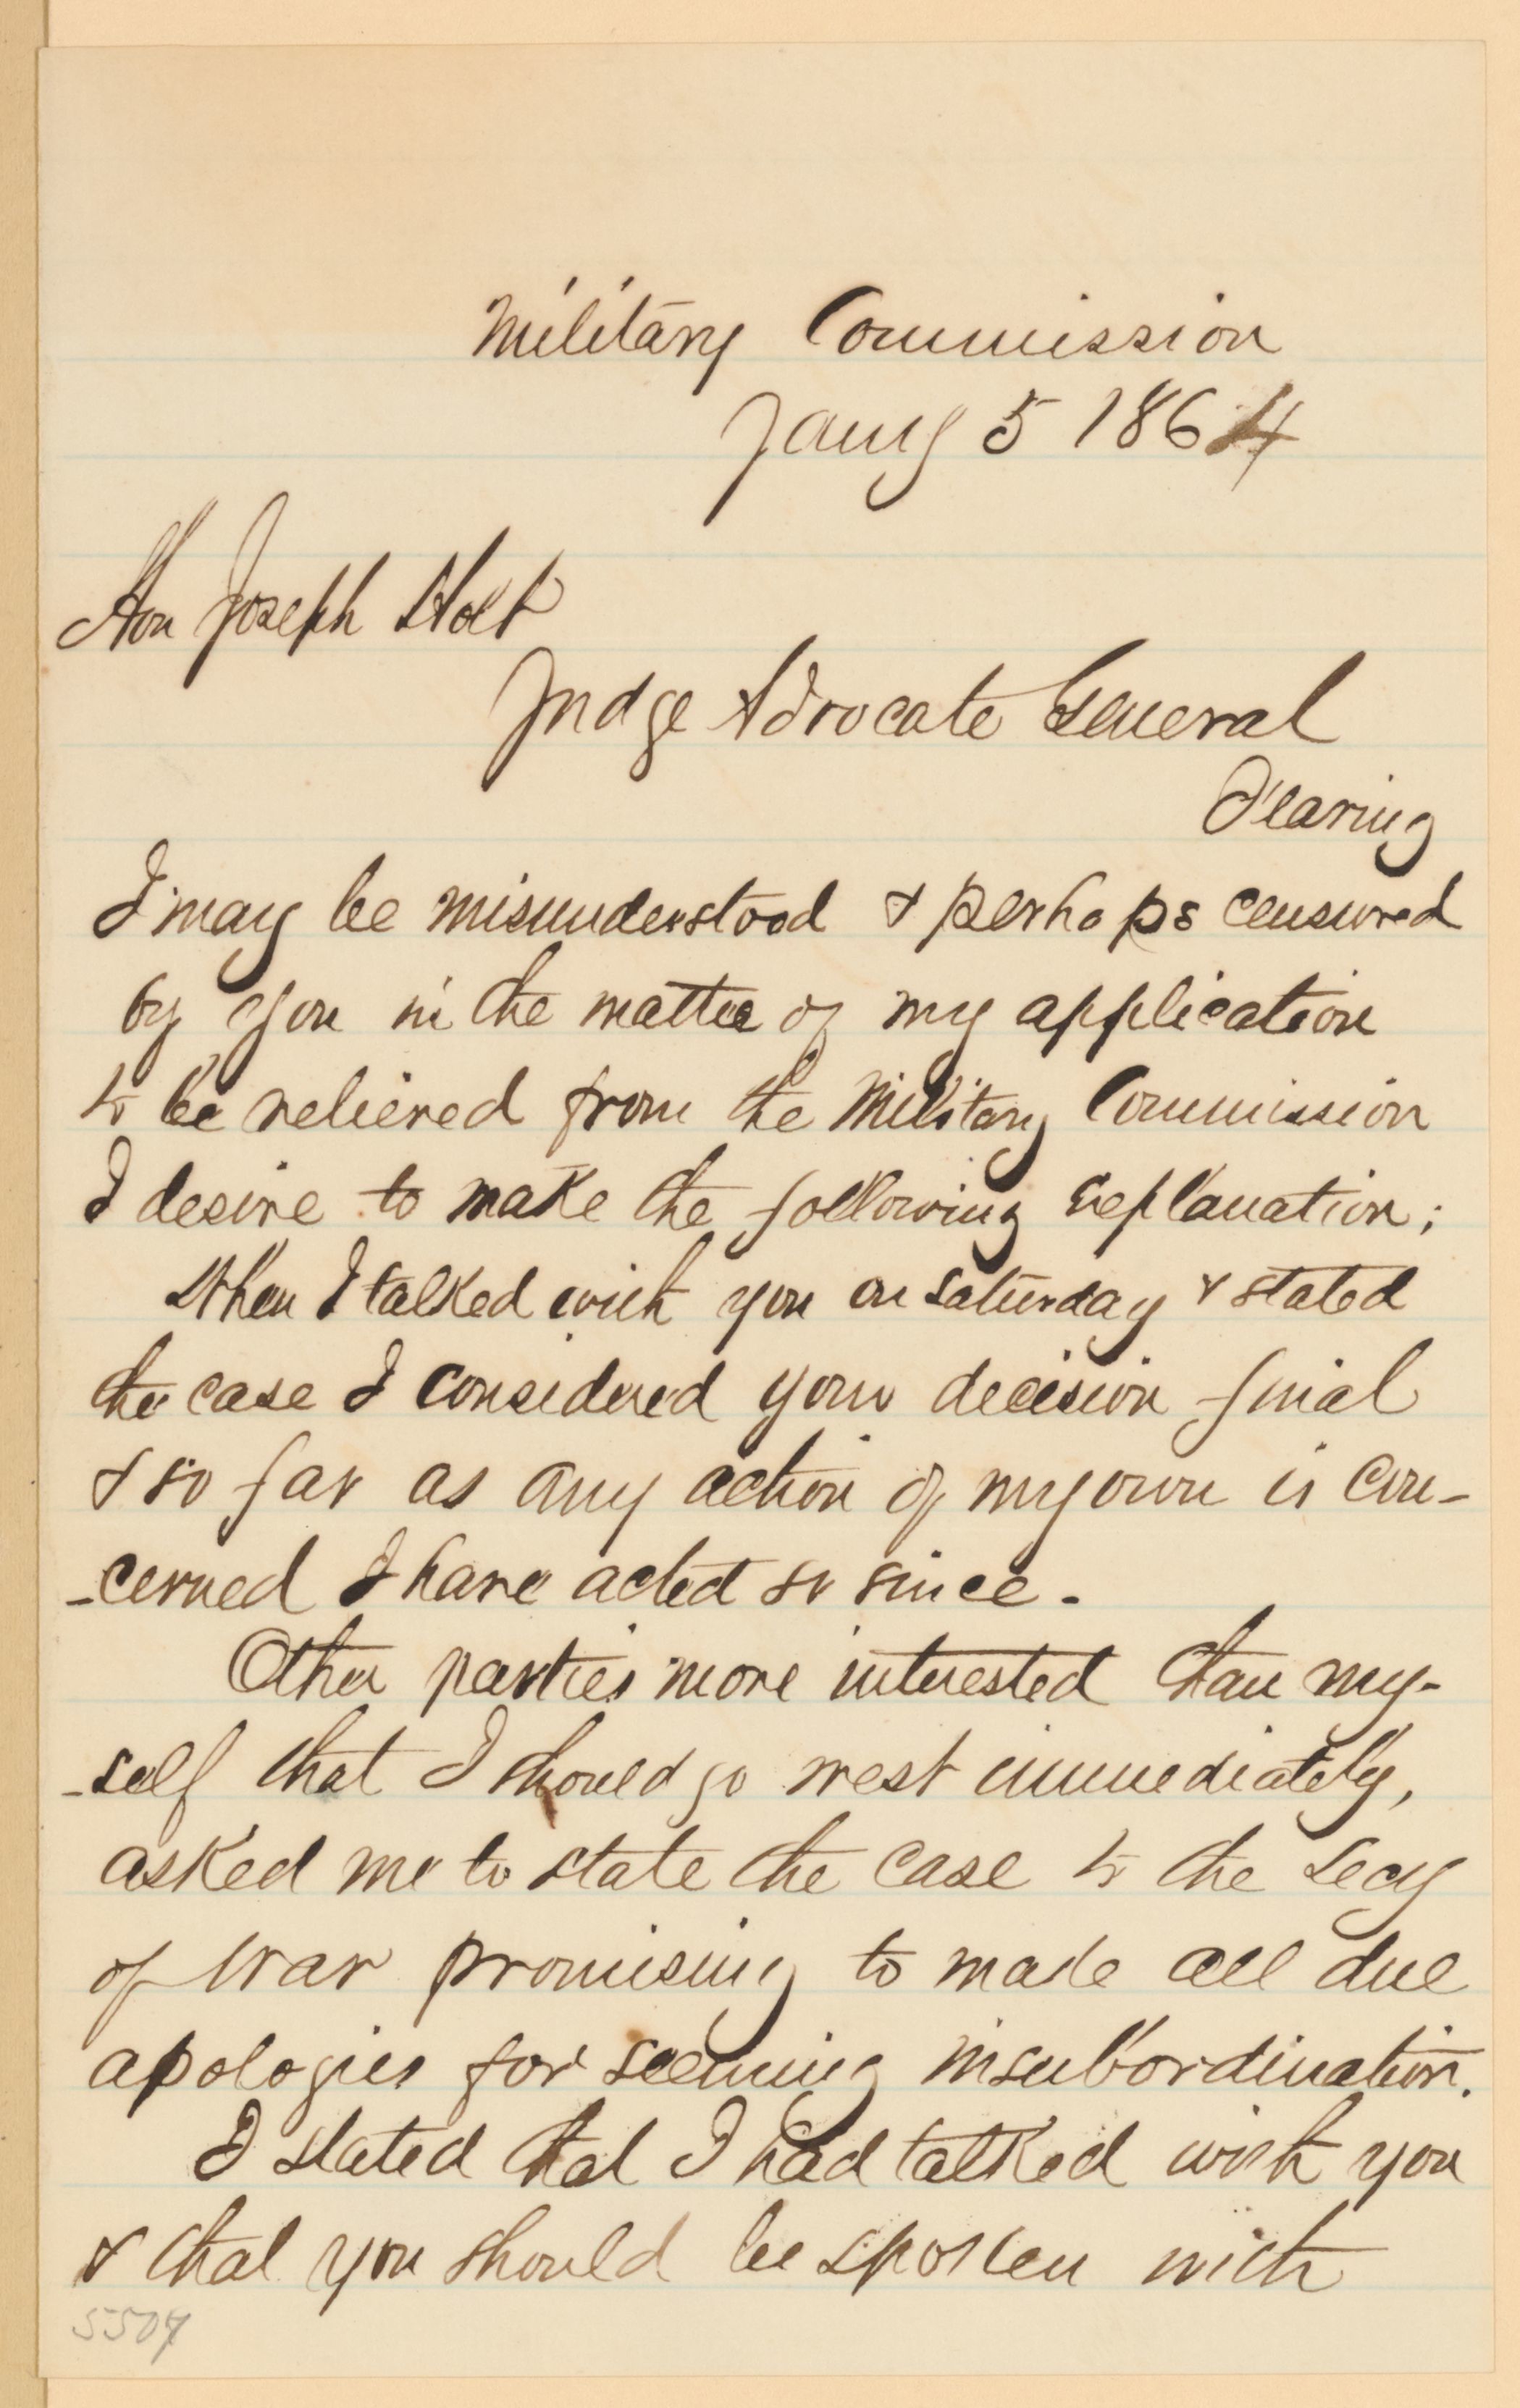 Military Commission
Jany 5 1864
Hon Joseph Holt
Judge Advocate General
Fearing
I may be misunderstood & perhaps censured
by you in the matter of my application
to be relieved from the Military Commission
I desire to make the following explanation;
When I talked with you on Saturday & stated
the case I considered your decision final
& so far as any action of my own is con-
-cerned I have acted so since.
Other parties more interested than my-
-self that I should go west immediately,
asked me to state the case to the Secy
of War promising to make all due
apologies for seeming insubordination.
I stated that I had talked with you
& that you should be spoken with
5507